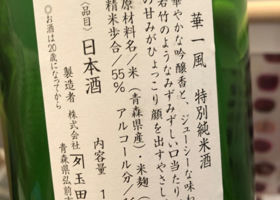 華一風 特別純米酒
華やかな吟醸香と、ジューシーな味わ
若竹のようなみずみずしい口当たり
の甘みがひょっこり顔を出すやさし
原材料名/米(青森県産)、米麹(
精米歩合/55% アルコール分/
〈品目〉日本酒 内容量 1
製造者 株式会社 玉田
青森県弘前市
◎お酒は20歳になってから